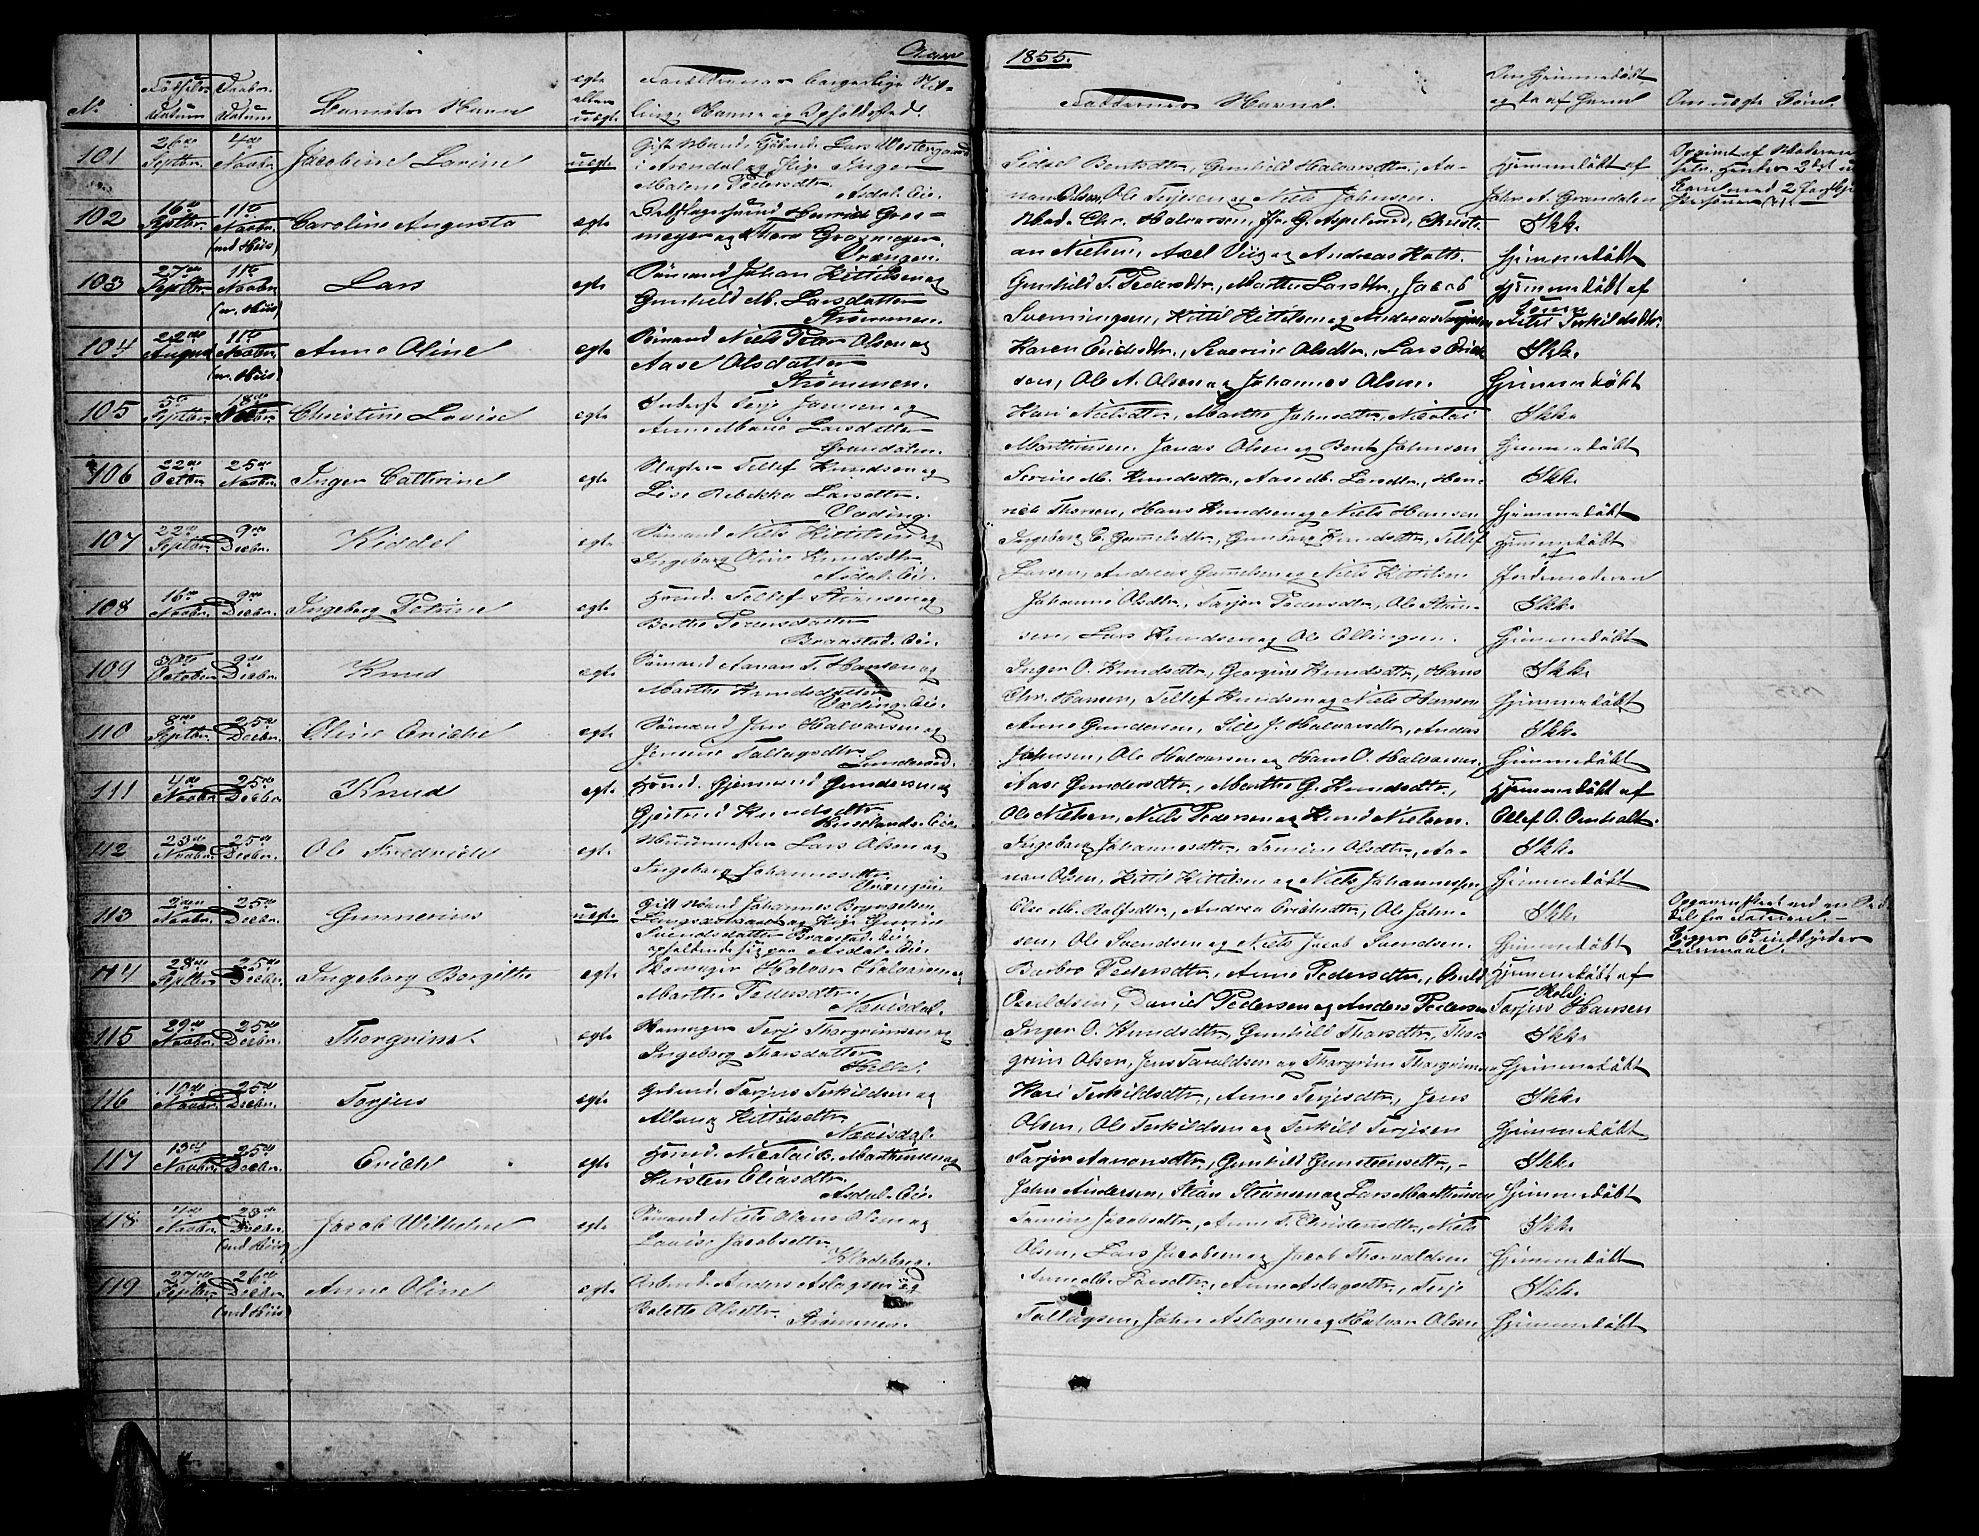 Aaret 1855.
No. Fødsels- Datum Daabs- Datum Barnets Navn egte eller uegte Forældrenes borgerlige Stilling, Navne og Opholdssted. Faddernes Navne. Om Hjemmedøbt og da af hvem Om uegte Børn.
101 26de Septbr. 4de Novbr. Jacobine Lovine uegte Gift Mand Lars Westergaard
i Arendal og Pige Inger
Malene Pedersdtr.
Asdal. Eie.
Sidsel Berntsdtr., Gunhild Halvorsdtr., Aa-
nan Olsen, Ole Terjesen og Niels Johnsen.
Hjemmedøbt af
John A. Grandalen
102 16de Septbr. 11te Novbr. (ved Hiis) Caroline Augusta egte Henrich Gros-
meyer og Grosmeyer.
Vrængen.
Mad. Chr. Halvorsen, Fr. G. Aspelund, Christi-
an Nielsen, Axel Viig og Andreas Holth.
Ikke
Hjemmedøbt
103 27de Septbr. 11te Novbr. (v. Hiis) Lars egte Sømand Johan Kittelsen og
Gunhild M. Larsdatter
Strømmen.
Gunhild T. Pedersdtr., Marthe Larsdtr., Jacob
Svenningsen, Kittil Kittilsen og Andreas Terjesen
Hjemmedøbt af
Terkildsdtr.
104 22de August 11te Novbr. (v. Hiis) Anne Oline egte Sømand Niels Peter Olsen og
Aase Olsdatter
Strømmen.
Karen Erichsdtr., Severine Olsdtr., Lars Erich-
sen, Ole A. Olsen og Johannes Olsen.
Ikke
Hjemmedøbt
105 5te Septbr. 18de Novbr. Christine Lovise egte Inderst Terje Jansen og
Anne Marie Larsdatter
Grandalen.
Kari Nielsdtr., Marthe Johnsdtr., Nicolai
Marthinsen, Jonas Olsen og Bent Johnsen
Ikke
Hjemmedøbt
106 22de Octobr. 25de Novbr. Inger Cathrine egte Slagter Tellef Knudsen og
Lise Rebekka Larsdtr.
Vading.
Serine M. Knudsdtr., Aase M. Larsdtr., Hen-
rich Thorsen, Hans Knudsen og Niels Hansen
Ikke
Hjemmedøbt
107 22de Septbr. 9de Decbr. Kiddel egte Sømand Niels Kittilsen og
Ingeborg Oline Knudsdtr.
Asdal. Eie.
Ingeborg E. Gundersdtr., Gunborg Knudsdtr., Tellef
Larsen, Andreas og Niels Kittilsen
Hjemmedøbt
af
Jordemoderen
108 16de Novbr. 9de Decbr. Ingeborg Petrine egte Huusmd. Tellef Steensen og
Berthe Terjesdatter
Braastad. Eie.
Johanne Olsdtr., Torjer Pedersdtr., Ole Steen-
sen, Lars Knudsen og Ole Ellingsen.
Ikke
Hjemmedøbt
109 30te October 9de Decbr. Knud egte Sømand Aanon T. Hansen og
Marthe Knudsdatter
Vading. Eie.
Inger O. Knudsdtr., Georgine Knudsdtr., Hans
Chr. Hansen, Tellef Knudsen og Niels Hansen
Ikke
Hjemmedøbt
110 8de Septbr. 25de Decbr. Oline Ericke egte Sømand Jens Halvorsen og
Jensine Tallagsdtr.
Anne Gundersen, Sille J. Halvorsdtr., Anders
Johnsen, Ole Halvorsen og Hans O. Halvorsen.
Ikke
Hjemmedøbt
111 4de Novbr. 25de Decbr. Knud egte Huusmd. Gjermund Gundersen og
Gjertrud Knudsdtr.
Bisselands. Eie.
Aase Gundersdtr., Marthe G. Knudsdtr.,
Ole Nielsen, Niels Pedersen og Knud Nielsen.
Hjemmedøbt af
Ollef O. Omholt.
112 23de Novbr. 25de Decbr. Ole Fredrich egte Lars Olsen og
Ingeborg Johannesdtr.
Vrængen
Ingeborg Johannesdtr., Tomine Olsdtr., Aa-
non Olsen, Kittil Kittilsen og Niels Johannessen
Ikke
Hjemmedøbt
113 2den Novbr. 25de Decbr. Gunnerius uegte Gift Mand Johannes Bryngelsen
og Pige
Svendsdatter Braastad. Eie.
opholdende sig paa Asdal. Eie.
Else M. Rolfsdtr., Andrea Erichsdtr., Ole John-
sen, Ole Svendsen og Niels Jacob Svendsen.
Ikke
Hjemmedøbt
114 28de Septbr. 25de Decbr. Ingeborg Bergitte egte Skomager Halvor Halvorsen og
Marthe Pedersdtr.
Nævisdal.
Barbro Pedersdtr., Anne Pedersdtr., Osuld
Osuldsen, Daniel Pedersen og Anders Pedersen
Hjemmedøbt af
Torjus Hansen
115 29de Novbr. 25de Decbr. Thorgrim egte Skomager Terje Thorgrimsen og
Ingeborg Thorsdatter
Helle.
Inger O. Knudsdtr., Gunhild Thorsdtr., Thor-
grim Olsen, Jens Taraldsen og Thorgrim Thorgrimsen
Ikke
Hjemmedøbt
116 10de Novbr. 25de Decbr. Torjus egte Gbrmd. Torjus Terkildsen og
Allaug Kittilsdtr.
Nævisdal.
Kari Terkildsdtr., Anne Terjesdtr., Jens
Olsen, Ole Terkildsen og Terkild Terjesen
Ikke
Hjemmedøbt
117 13de Novbr. 25de Decbr. Erich egte Huusmd. Nicolai B. Marthinsen og
Kirsten Eliasdtr.
Asdal. Eie.
Torjer Aanonsdtr., Gunhild Gunsteensdtr.,
John Andersen, Stian Steansen og Lars Marthinsen
Ikke
Hjemmedøbt
118 4de Novbr. 23de Decbr. (ved Hiis) Jacob Wilhelm egte Sømand Niels Olaus Olsen og
Lovise Jacobsdtr.
Kladeberg.
Tomine Jacobsdtr., Anne T. Christensdtr., Niels
Olsen, Lars Jacobsen og Jacob Thorvaldsen
Ikke
Hjemmedøbt
119 27de Septbr. 26de Decbr. (ved Hiis) Anne Oline egte Arbmd. Anders Aslagsen og
Bolette Olsdtr.
Strømmen.
Anne M. Larsdtr., Anne Aslagsdtr., Terje
Tallagsen, John Aslagsen og Halvor Olsen
Ikke
Hjemmedøbt